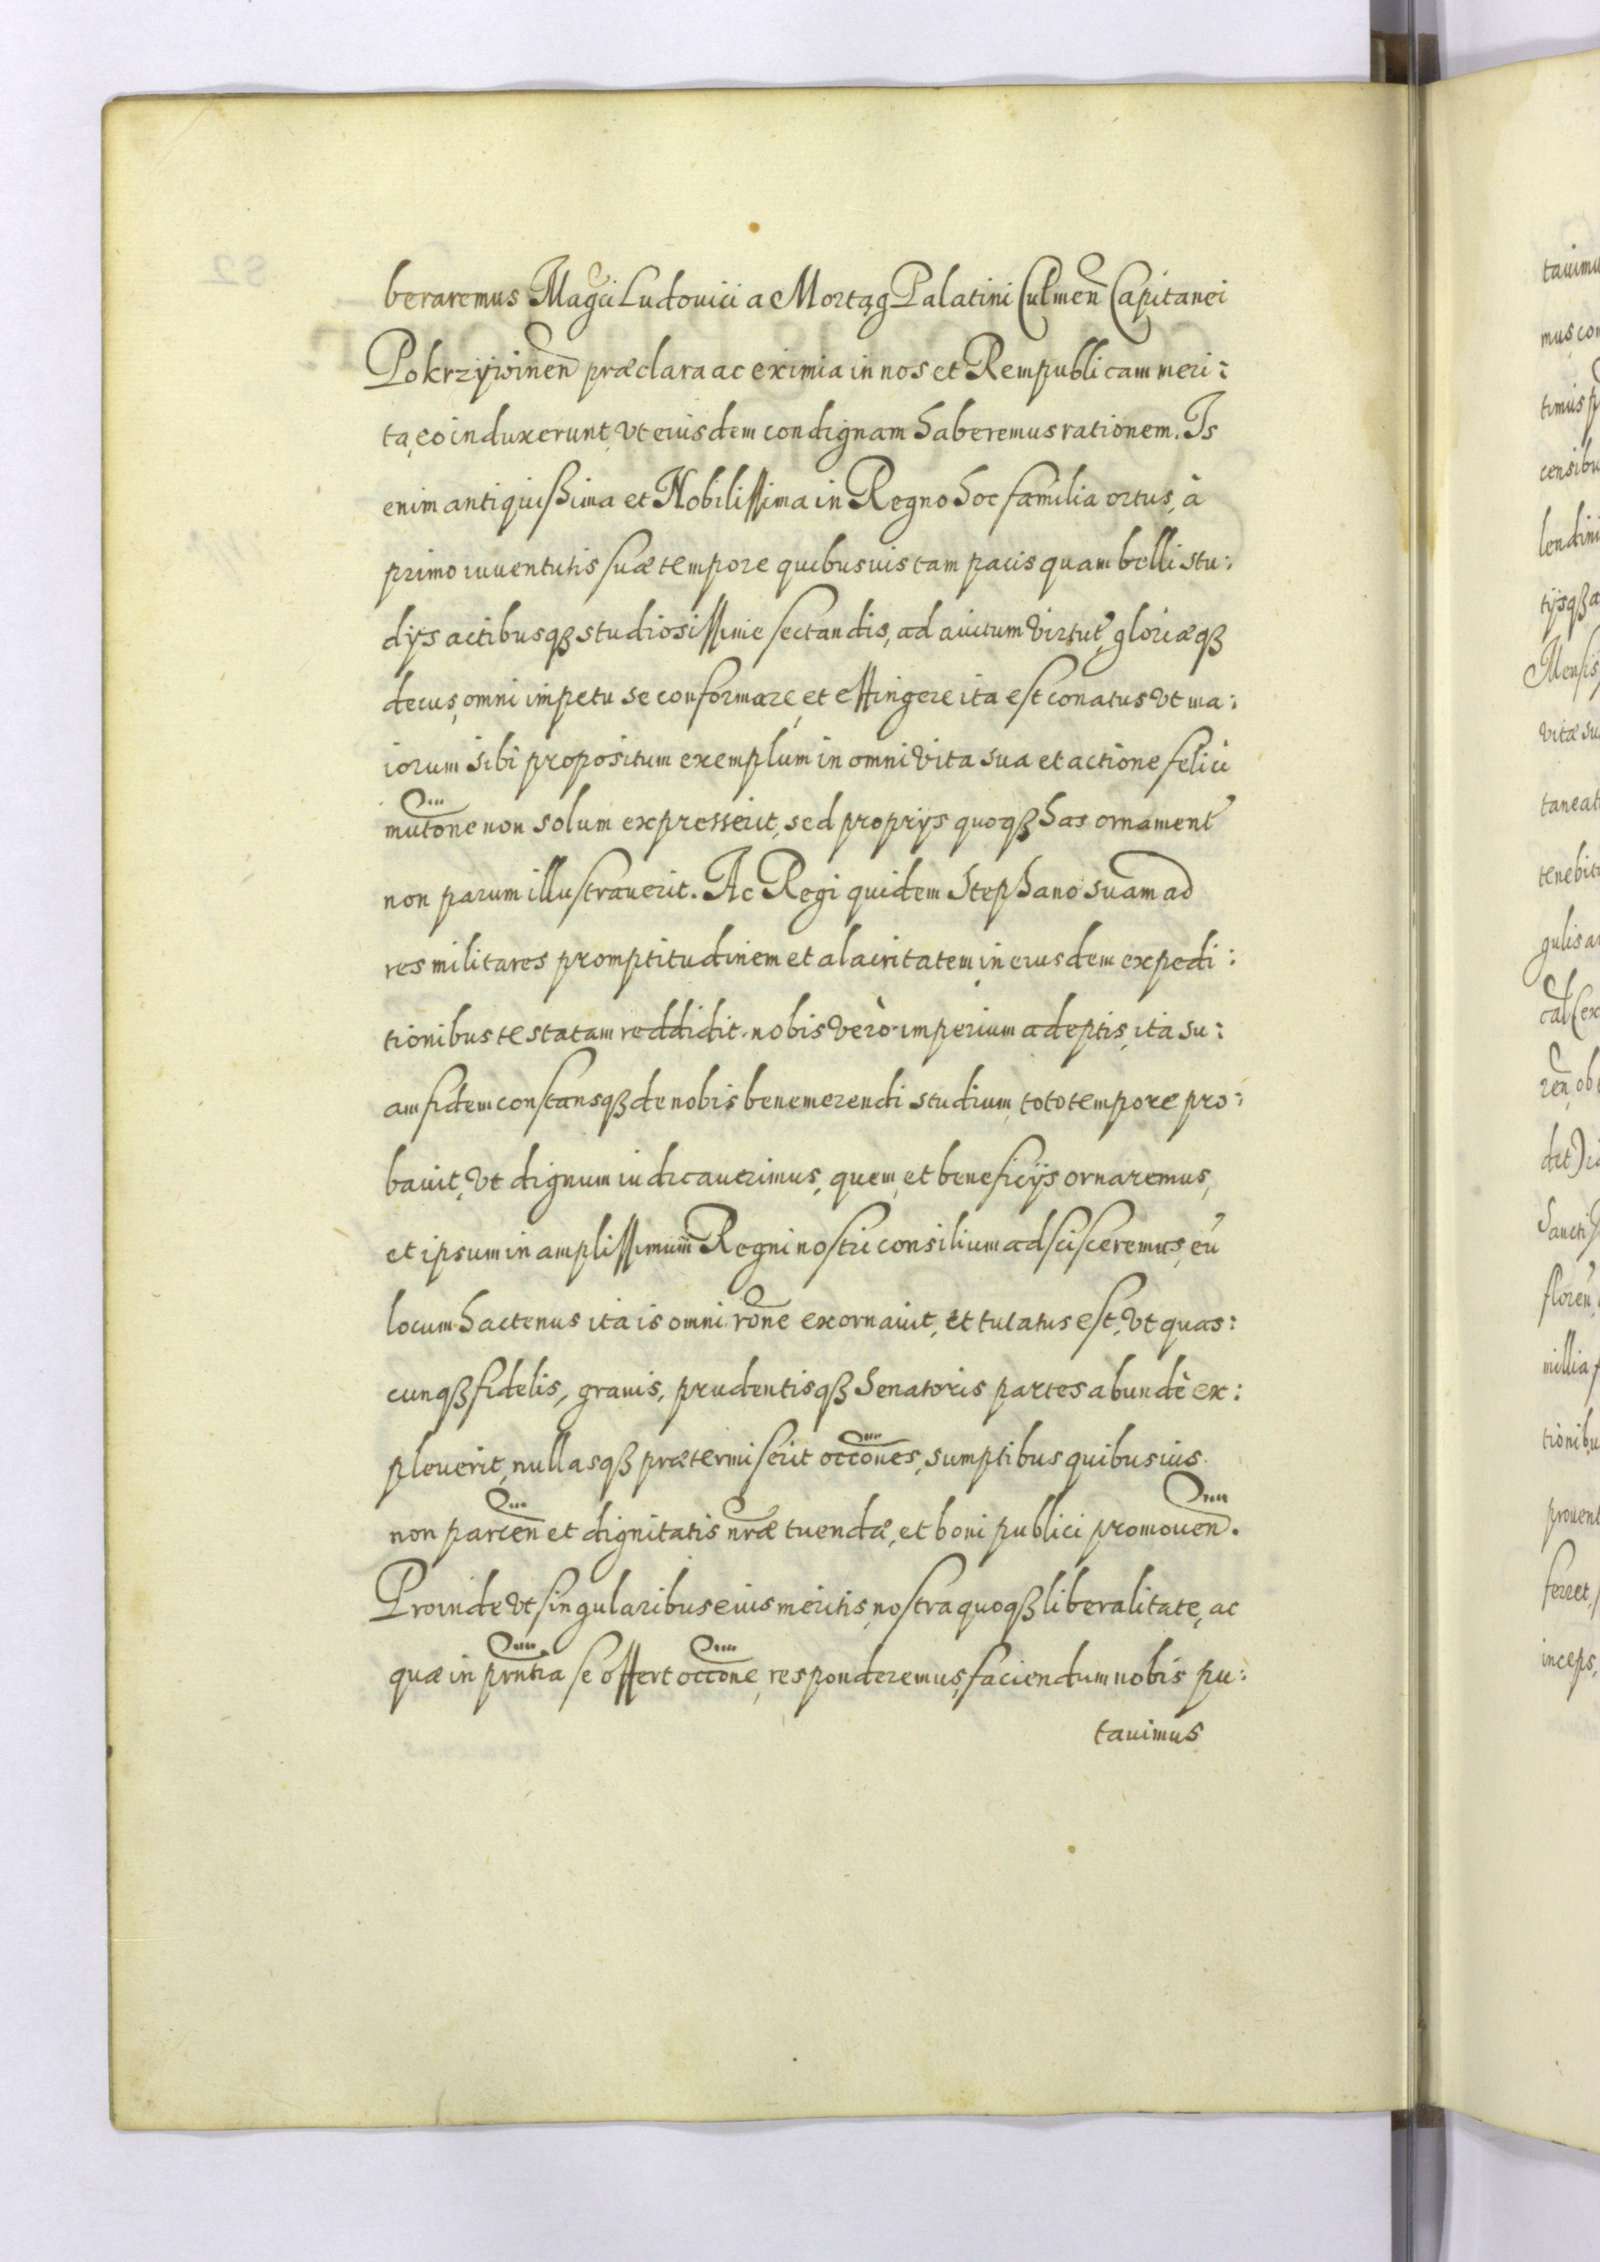 beraremus Magci Ludovici a Mortąg Palatini Culmen Capitanei
Pokrzyiwinen præclara ac eximia in nos et Rempublicam meri:
ta, eo induxerunt, vt eiusdem condignam haberemus rationem. Is
enim antiquissima et Nobilissima in Regno hoc familia ortus, à
primo iuuentutis suæ tempore quibusuis tam pacis quam belli stu:
dijs actibusqȝ studiosissime sectandis, ad auitum virtut, gloriæqȝ
decus, omni impetu se conformare, et effingere ita est conatus vt ma:
iorum sibi propositum exemplum in omni vita sua et actione felici
mutone non solum expresserit, sed proprijs quoqȝ has ornament
non parum illustrauerit. Ac Regi quidem Stephano suam ad
res militares promptitudinem et alacritatem, in eiusdem expedi:
tionibus testatam reddidit. nobis verò imperium adeptis, ita su:
am fidem constansqȝ de nobis benemerendi studium, toto tempore pro:
bauit, vt dignum iudicauerimus, quem, et beneficijs ornaremus,
et ipsum in amplissimum Regni nostri consilium adscisceremus, eū
locum hactenus ita is omni rone exornauit, et tutatus est, vt quas:
cunqȝ fidelis, grauis, prudentisqȝ Senatoris partes abundè ex:
pleuerit, nullasqȝ prætermiserit occones, sumptibus quibusuis
non parcen et dignitatis nræ tuendæ, et boni publici promouen.
Proinde vt singularibus eius meritis, nostra quoqȝ liberalitate, ac
quæ in prntia se offert occone, responderemus, faciendum nobis pu:
tauimus